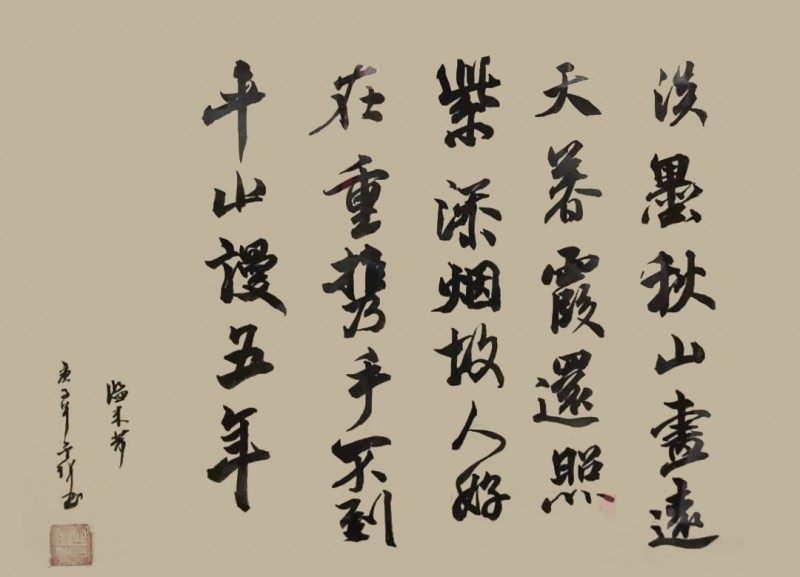 淡墨秋山畫遠
天暮霞還照
紫添烟故人好
在重携手不到
平山謾五年
临米芾
庚子年书